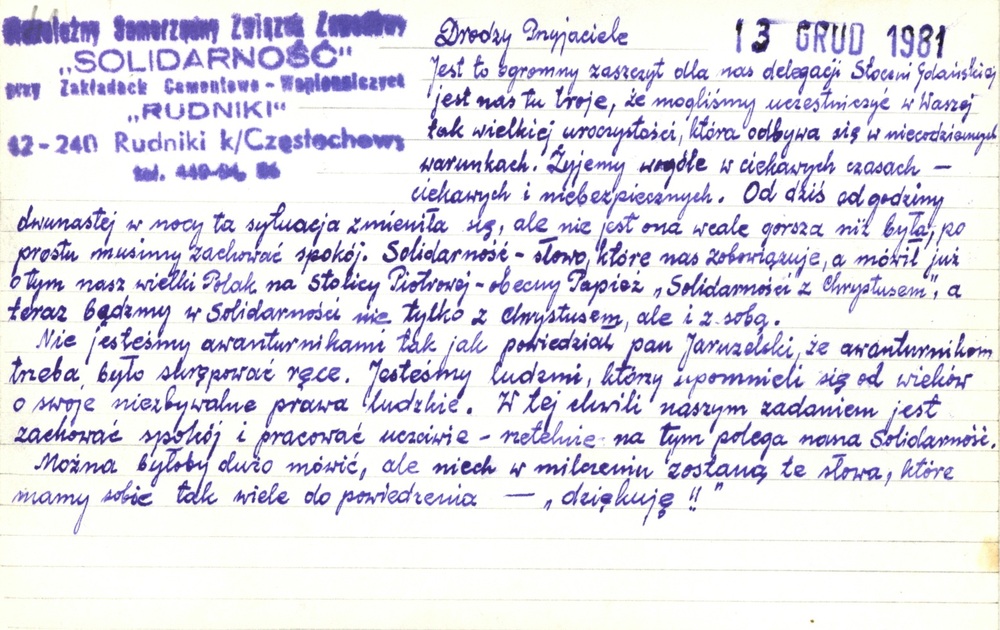 Niezależny Samorządny Związek Zawodowy
„SOLIDARNOŚĆ"
przy Zakładach Cementowo-Wapienniczych
„RUDNIKI"
42-240 Rudniki k/Częstochowy
tel. 449-94, 86
13 GRUD 1981
Drodzy Przyjaciele
Jest to ogromny zaszczyt dla nas delegacji Stoczni Gdańskiej
jest nas tu troje, że mogliśmy uczestniczyć w Waszej
tak wielkiej uroczystości, która odbywa się w niecodziennych
warunkach. Żyjemy wogóle w ciekawych czasach –
ciekawych i niebezpiecznych. Od dziś od godziny
dwunastej w nocy ta sytuacja zmieniła się, ale nie jest ona wcale gorsza niż była, po
prostu musimy zachować spokój. Solidarność – słowo, które nas zobowiązuje, a mówił już
o tym nasz wielki Polak na Stolicy Piotrowej – obecny Papież „Solidarności z Chrystusem", a
teraz bądźmy w Solidarności nie tylko z Chrystusem, ale i z sobą.
Nie jesteśmy awanturnikami tak jak powiedział pan Jaruzelski, że awanturnikom
trzeba było skrępować ręce. Jesteśmy ludźmi, którzy upomnieli się od wieków
o swoje niezbywalne prawa ludzkie. W tej chwili naszym zadaniem jest
zachować spokój i pracować uczciwie – rzetelnie na tym polega nasza Solidarność.
Można byłoby dużo mówić, ale niech w milczeniu zostaną te słowa, które
mamy sobie tak wiele do powiedzenia — „dziękuję !!"